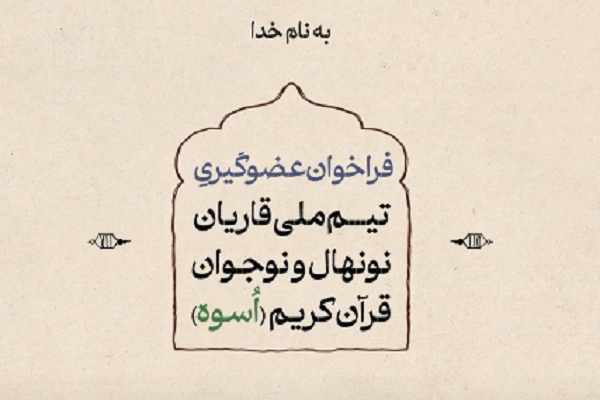 به نام خدا
فراخوان عضوگیریِ
تیـم ملی قاریان
نونهال و نوجوان
قرآن کریم (اُسوه)